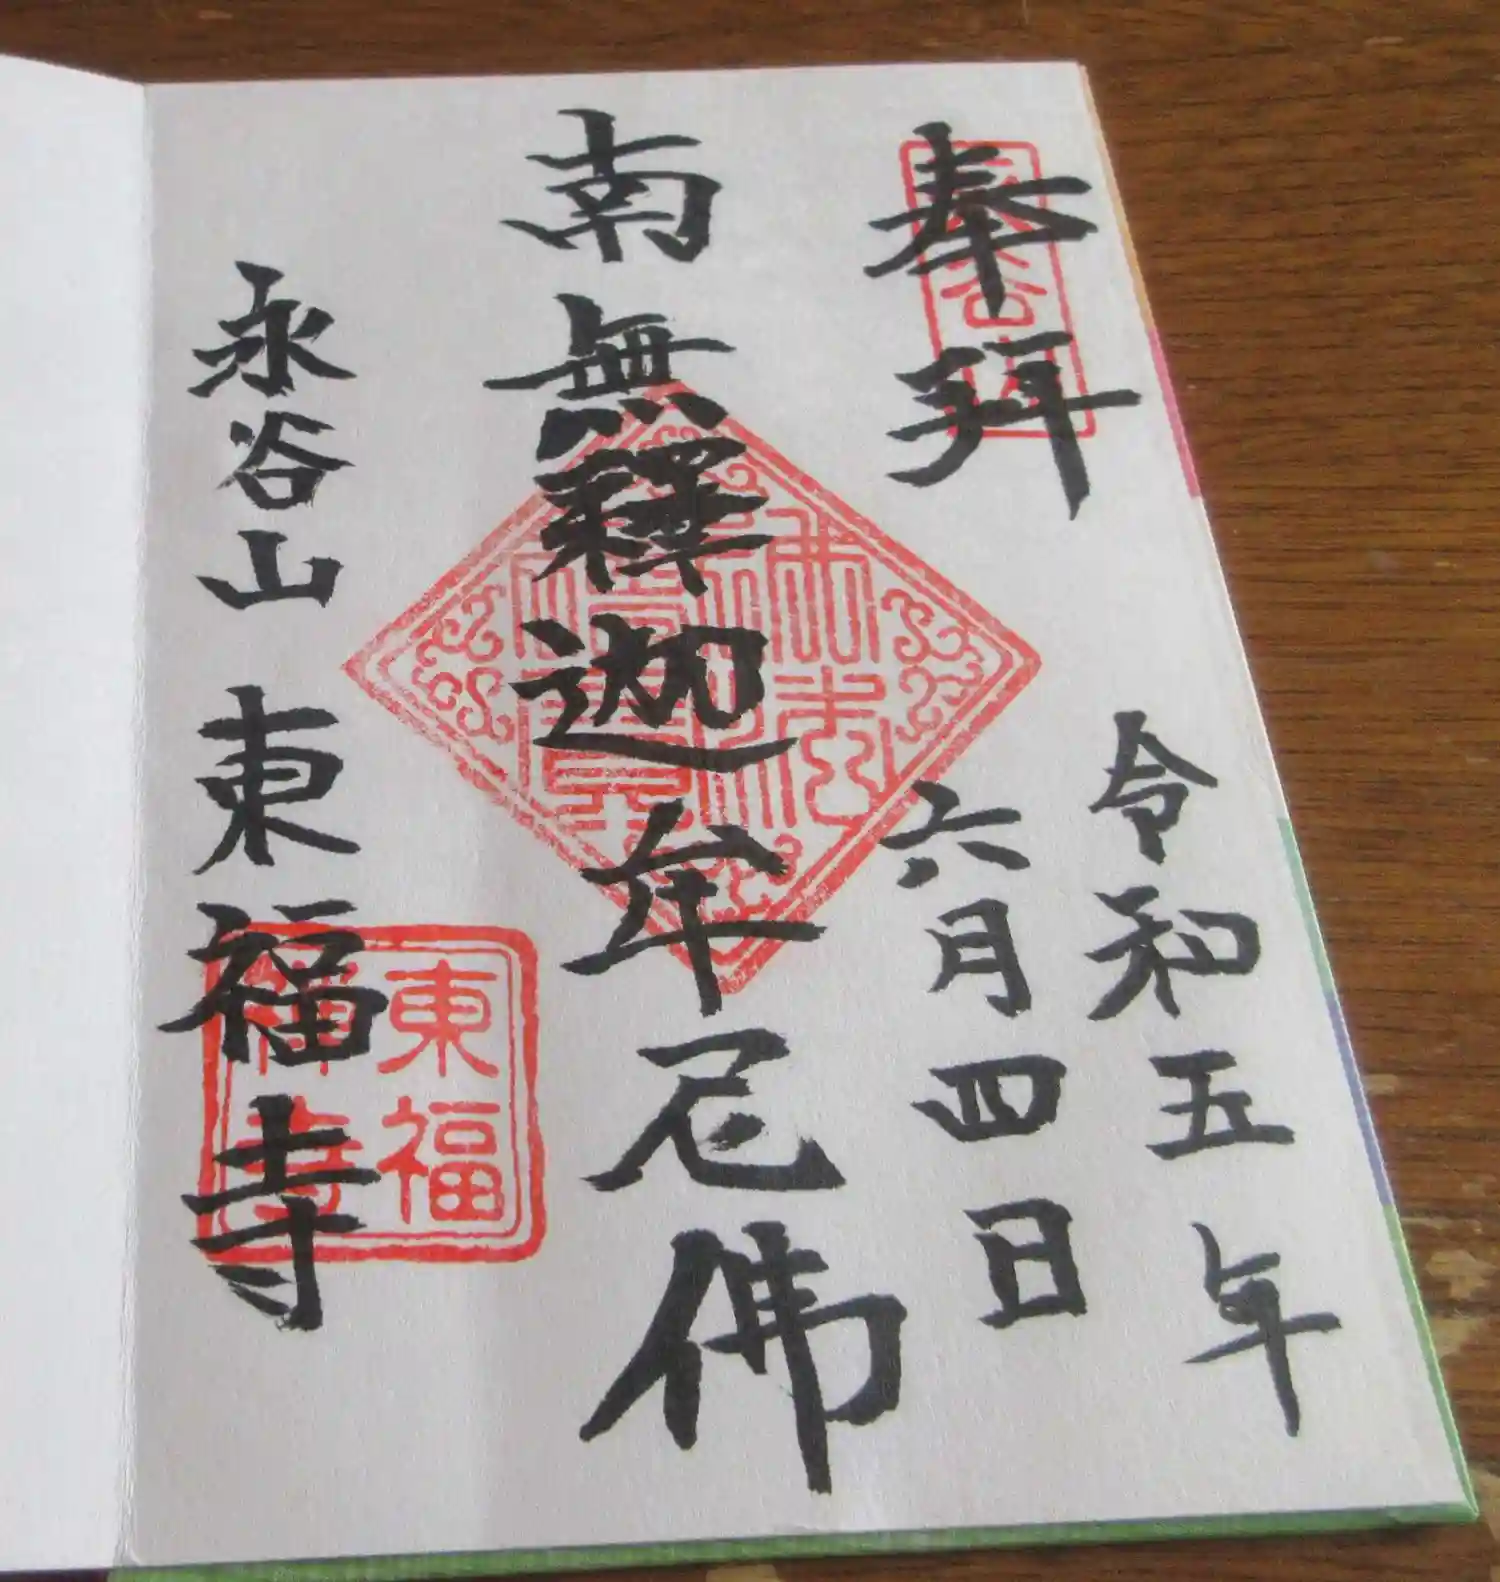 奉拝
令和五年
六月四日
南無釋迦牟尼佛
永谷山 東福寺
佛法僧寳
東福禅寺